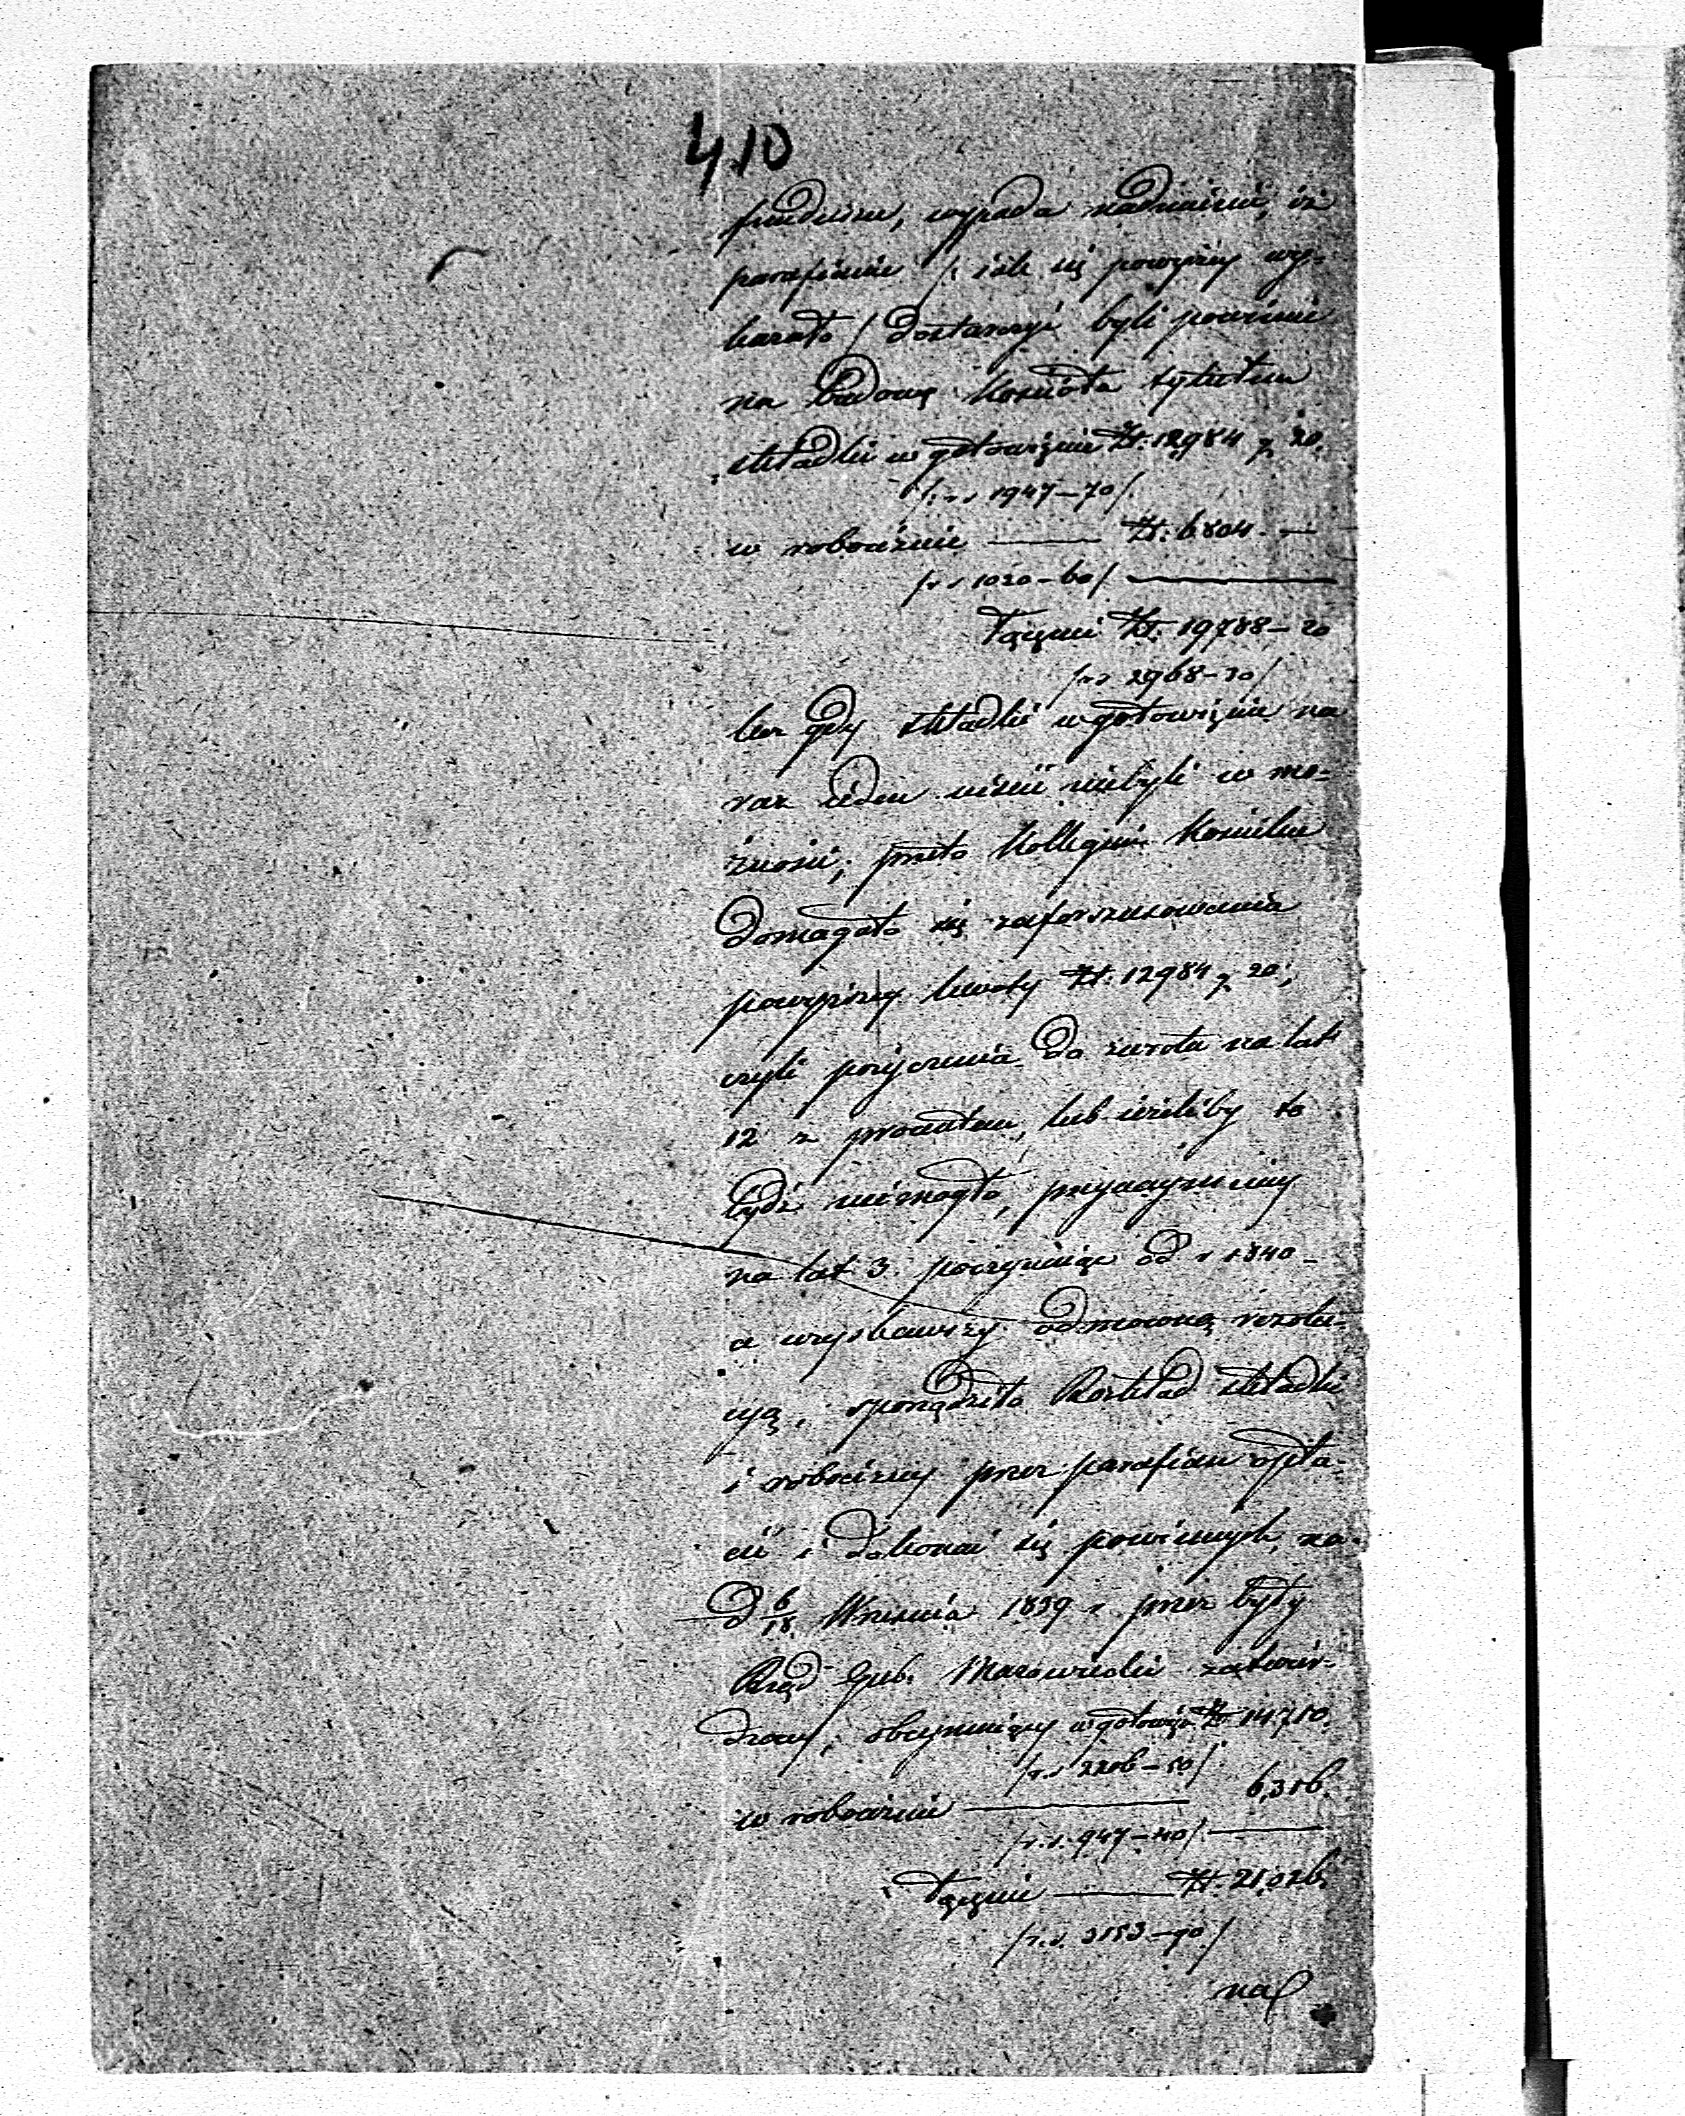 410
funduszu, wypada nadmienić, iż
parafianie /: jak się powyżéy wy-
kazało / dostarczyć byli powinni
na budowę Kościoła tytułem
składki w gotowiźnie Zł. 12984 g 20.
/: r s 1947–70 /.
w robociźnie — Zł. 6804. —
/ r s 1020–60 /
Łącznie Zł. 19788–20
/ r s 2968–30 /
lecz gdy składki w gotowiźnie na
raz jeden uiścić niebyli w mo-
żności; przeto Kollegium Kościelne
domagało się zaforszusowania
powyższey kwoty Zł. 12984 g 20,
czyli pożyczenia do zwrotu na lat
12 z procentem, lub jeżeliby to
bydź niemogło, przynaymniey
na lat 3. poczynając od r 1840 –
a uzyskawszy odmowną rezolu-
cyą, sporządziło Rozkład składki
i robocizny przez parafian opła-
cić i dokonać się powinnych, na
d 6/18 Września 1839 r przez były
Rząd Gub. Mazowiecki zatwier-
dzony, obeymujący w gotowiź Zł 14710.
/ r. s 2206–50 /.
w robociźnie — 6,316.
/ r. s. 947–40 /
Łącznie — Zł. 21,026.
/ r. s. 3153–90 /
na